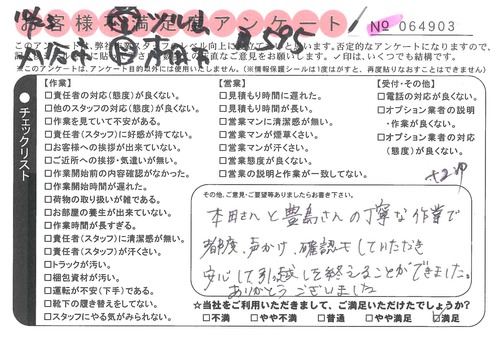 お客様満足度アンケート
№ 064903
このアンケートは、弊社作業スタッフのレベル向上に役立てたいと思います。否定的なアンケートになりますので、
ご意見をお願いします。✓印は、いくつでも結構です。
※このアンケートは、アンケート目的以外には使用いたしません。（※情報保護シールは1度はがすと、再度貼りなおすことはできません）
● チェックリスト
【作業】
□責任者の対応（態度）が良くない。
□他のスタッフの対応（態度）が良くない。
□作業を見ていて不安がある。
□責任者（スタッフ）に好感が持てない。
□お客様への挨拶が出来ていない。
□ご近所への挨拶・気遣いが無い。
□作業開始前の内容確認がなかった。
□作業開始時間が遅れた。
□荷物の取り扱いが雑である。
□お部屋の養生が出来ていない。
□作業時間が長すぎる。
□責任者（スタッフ）に清潔感が無い。
□責任者（スタッフ）が汗くさい。
□トラックが汚い。
□梱包資材が汚い。
□運転が不安（下手）である。
□靴下の履き替えをしてない。
□スタッフにやる気がみられない。
【営業】
□見積もり時間に遅れた。
□見積もり時間が長い。
□営業マンに清潔感が無い。
□営業マンが煙草くさい。
□営業マンが汗くさい。
□営業態度が良くない。
□営業の説明と作業が一致してない。
【受付・その他】
□電話の対応が良くない。
□オプション業者の説明
・作業が良くない。
□オプション業者の対応
（態度）が良くない。
その他、ご意見・ご要望等ありましたらお書き下さい。
本田さんと豊島さんの丁寧な作業で
都度、声かけ、確認もしていただき
安心して引越しを終えることができました。
ありがとうございました
☆当社をご利用いただきまして、ご満足いただけたでしょうか？
□不満 □やや不満 □普通 □やや満足 ☑満足